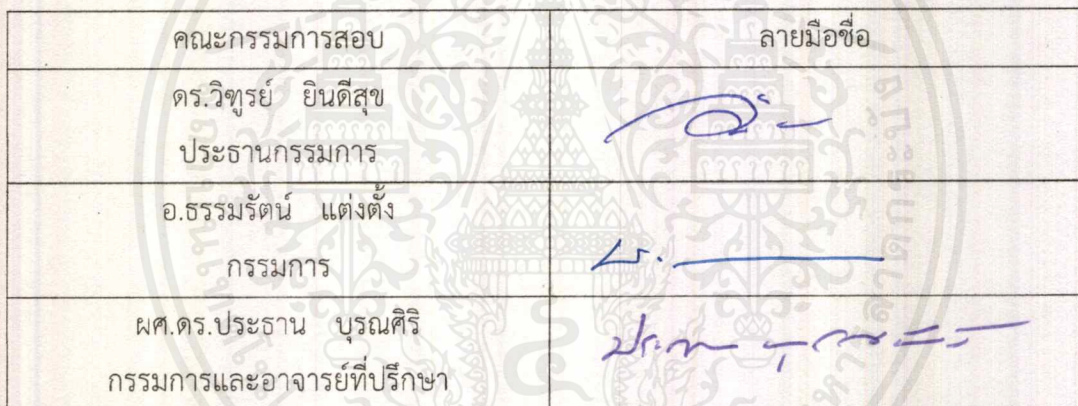 คณะกรรมการสอบ ลายมือชื่อ
ดร.วิฑูรย์ ยินดีสุข
ประธานกรรมการ
อ.ธรรมรัตน์ แต่งตั้ง
กรรมการ
ผศ.ดร.ประธาน บุรณศิริ
กรรมการและอาจารย์ที่ปรึกษา